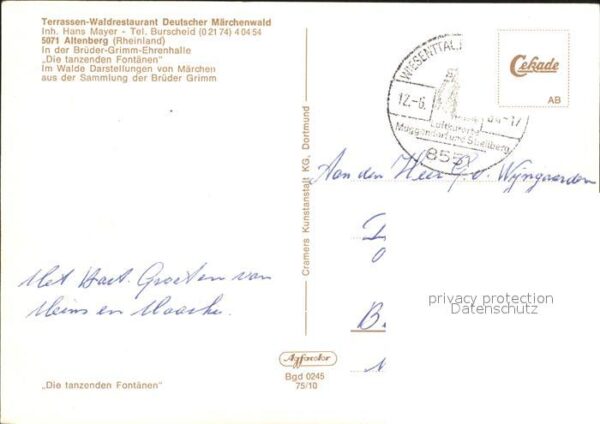 Terrassen-Waldrestaurant Deutscher Märchenwald
Inh. Hans Mayer - Tel. Burscheid (0 21 74) 4 04 54
5071 Altenberg (Rheinland)
In der Brüder-Grimm-Ehrenhalle
„Die tanzenden Fontänen"
Im Walde Darstellungen von Märchen
aus der Sammlung der Brüder Grimm
WIESENTTAL
12.-6.
-17
Luftkurorte
Muggendorf und Streitberg
8551
Cekade
AB
Aan den Heer v. Wijngaarden
B.
Met Hart. Groeten van
en
Cramers Kunstanstalt KG, Dortmund
Agfacolor
Bgd 0245
75/10
„Die tanzenden Fontänen"
privacy protection
Datenschutz